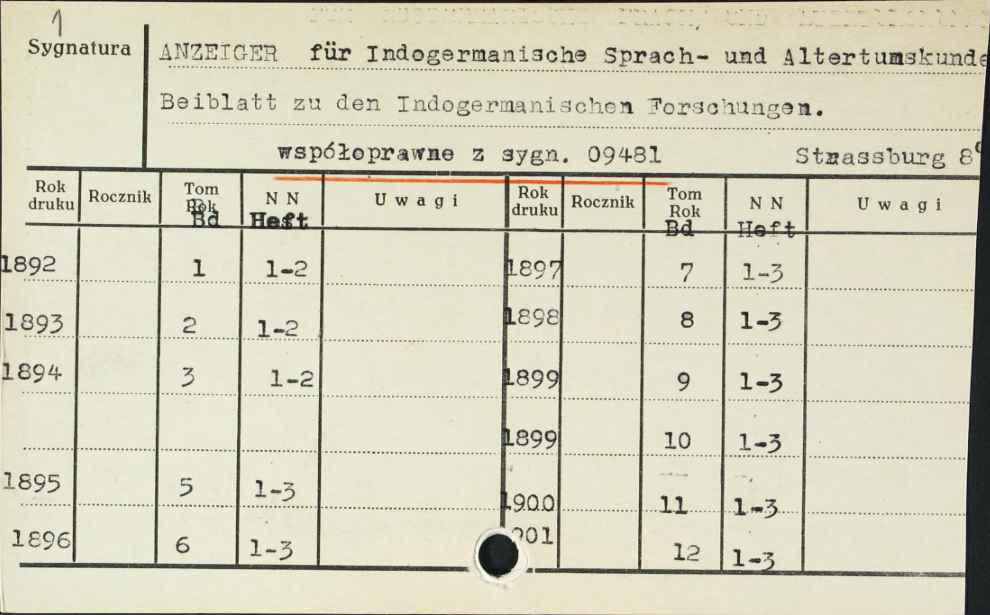 1
Sygnatura
ANZEIGER für Indogermanische Sprach- und Altertumskunde
Beiblatt zu den Indogermanischen Forschungen.
współoprawne z sygn. 09481 Strassburg 8°
Rok druku Rocznik Tom Rok Bd NN Heft Uwagi Rok druku Rocznik Tom Rok Bd NN Heft Uwagi
1892 1 1-2 1897 7 1-3
1893 2 1-2 1898 8 1-3
1894 3 1-2 1899 9 1-3
1899 10 1-3
1895 5 1-3 1900 11 1-3
1896 6 1-3 901 12 1-3